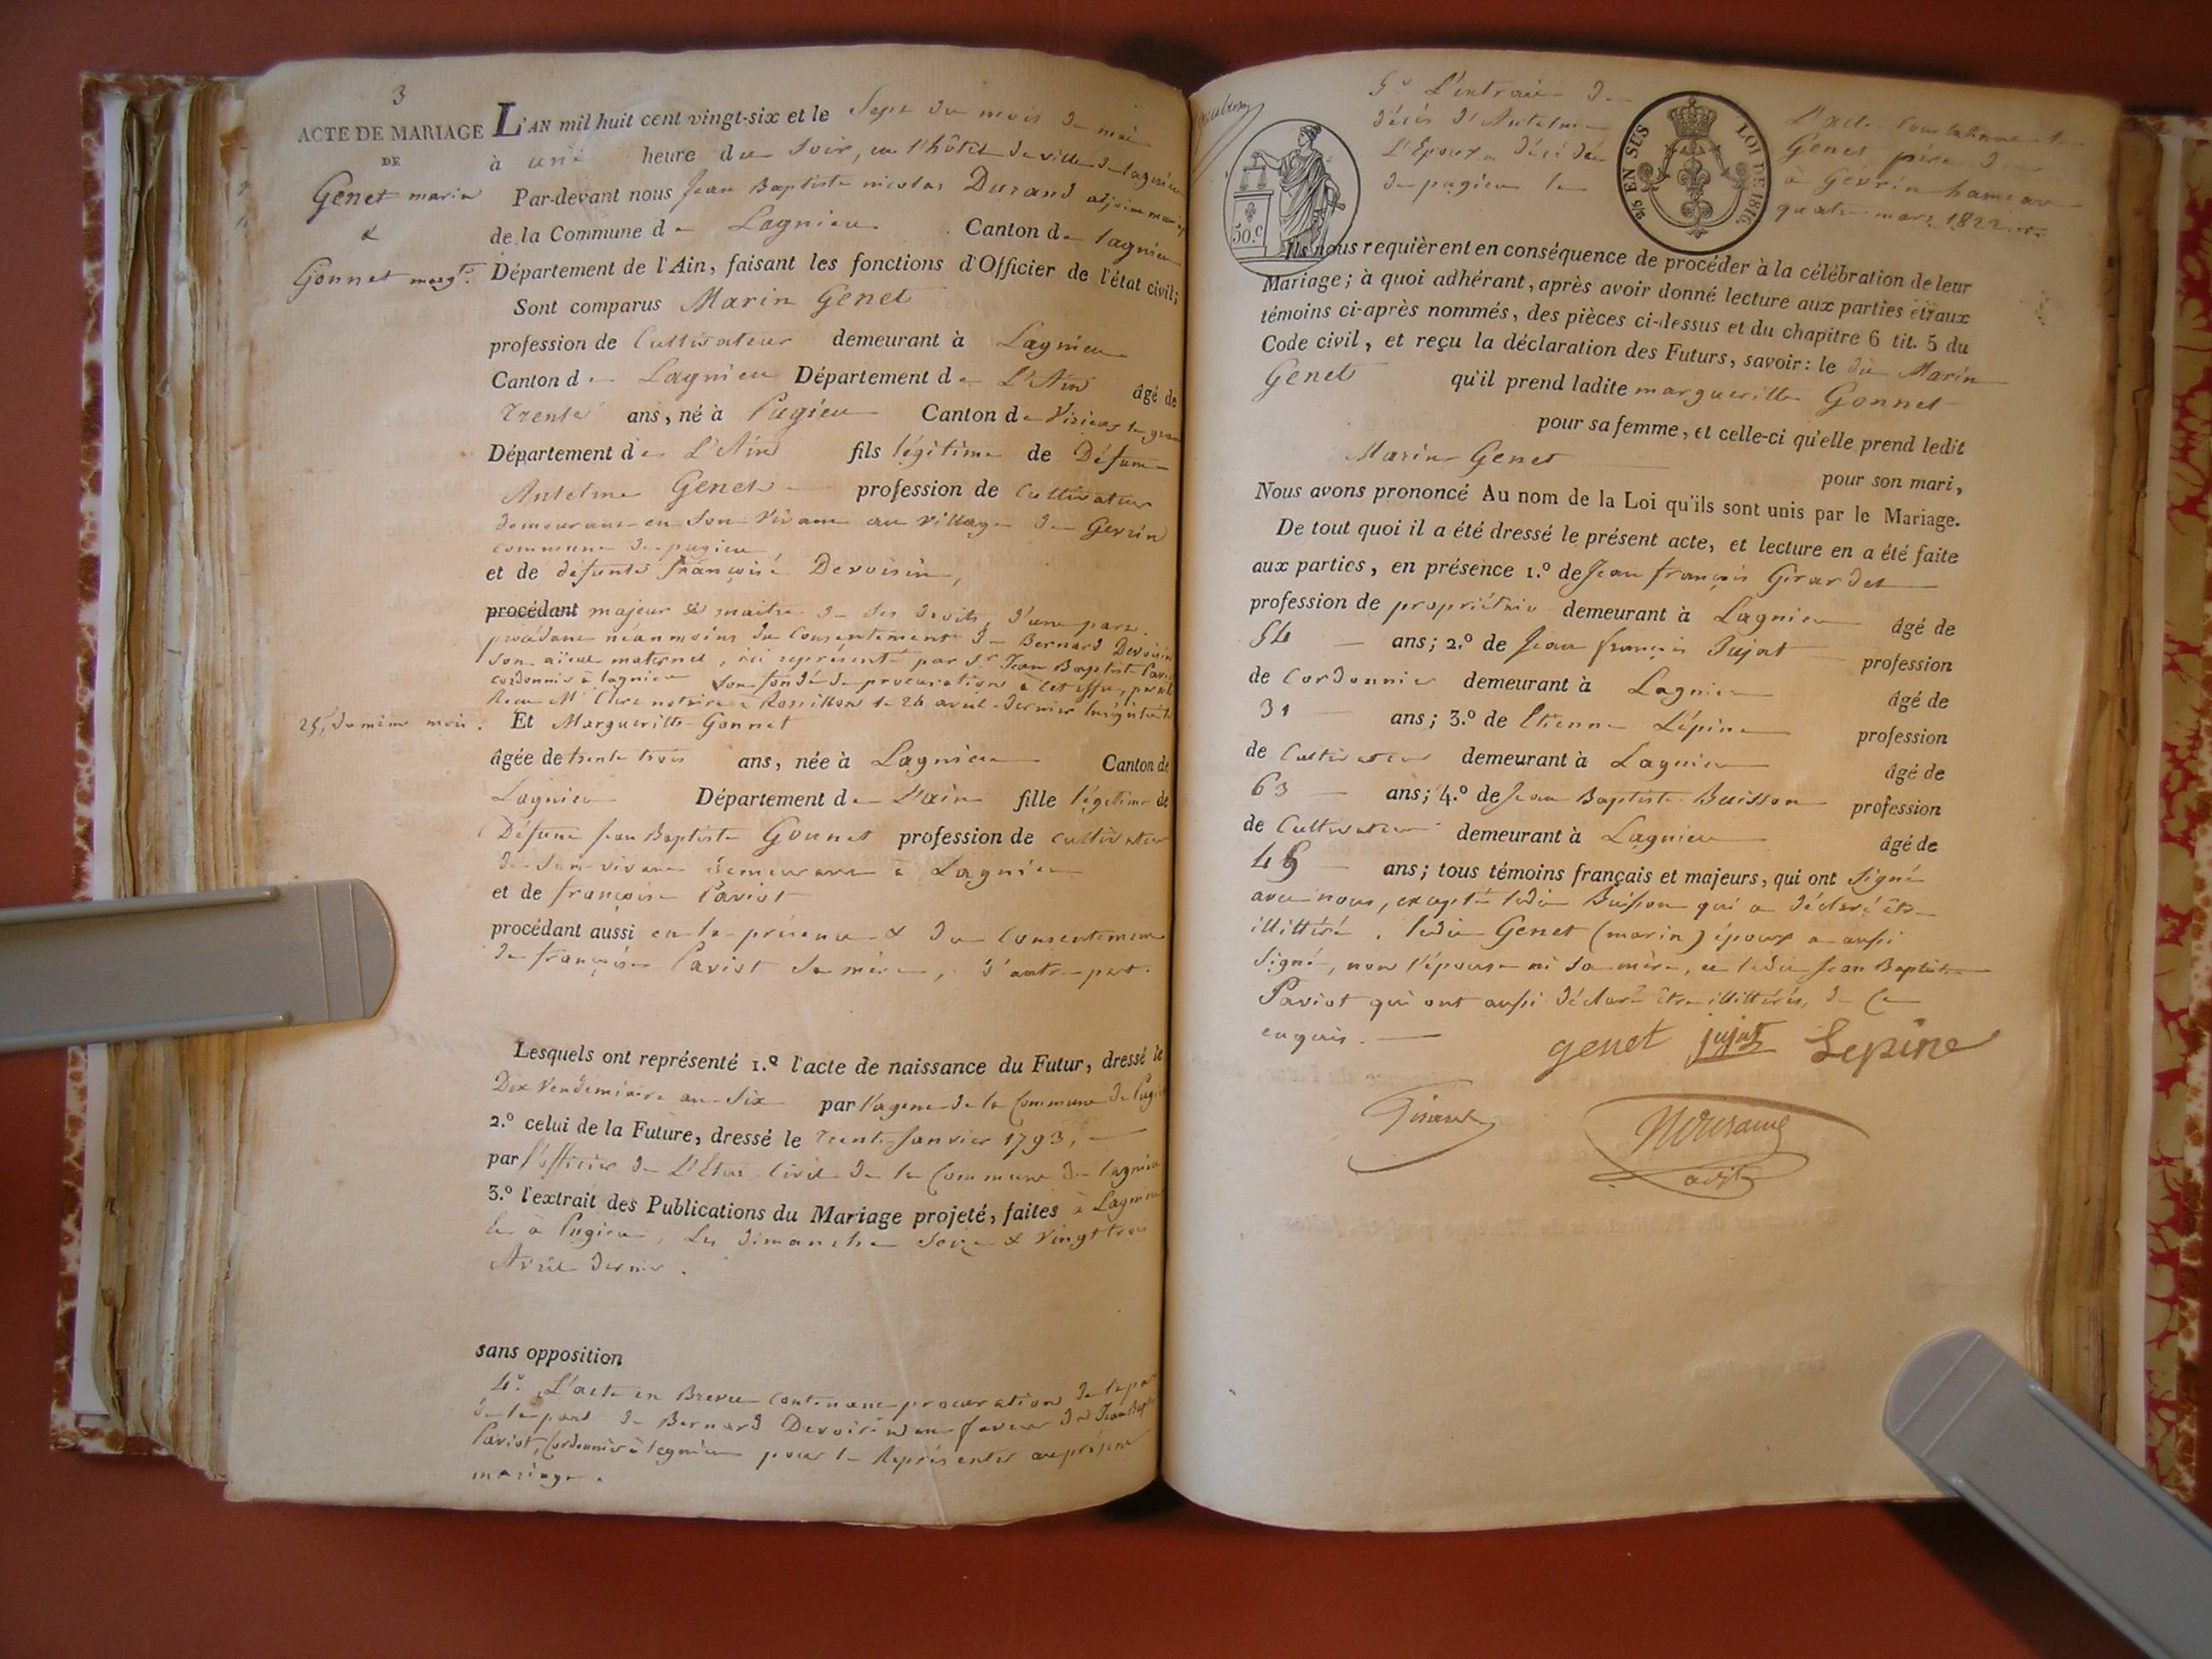 3
ACTE DE MARIAGE
DE
Genet marin
&
Gonnet marg.te
L'AN mil huit cent vingt-six et le Sept du mois de mai
à une heure du Soir, en l'hôtel de ville de lagnieu
Par-devant nous Jean Baptiste nicolas Durand adjoint
de la Commune de Lagnieu Canton de lagnieu
Département de l'Ain, faisant les fonctions d'Officier de l'état civil;
Sont comparus Marin Genet
profession de Cultivateur demeurant à Lagnieu
Canton de Lagnieu Département de L'Ain âgé de
Trente ans, né à Pugieu Canton de Virieux le grand
Département de L'Ain fils légitime de Défunt
Antelme Genet profession de Cultivateur
demeurant en Son Vivant au Village de Gevrin
commune de pugieu,
et de défunte françoise Devoisin,
procédant majeur & maitre de ses droits, d'une part.
procédant néanmoins du Consentement de Bernard Devoisin
Son aïeul maternel, ici représenté par Sr. Jean Baptiste Paviot
cordonnier à lagnieu Son fondé de procuration à cet effet,
Reçu Me notaire à Rossillon le 24 avril dernier Enregistré le
25, du même mois.
Et Margueritte Gonnet
âgée de trente trois ans, née à Lagnieu Canton de
Lagnieu Département de L'ain fille légitime de
Défunt Jean Baptiste Gonnet profession de cultivateur
de Son vivant demeurant à Lagnieu
et de françoise Paviot
procédant aussi en la présence & du Consentement
de françoise Paviot Sa mère, d'autre part.
Lesquels ont représenté 1.º l'acte de naissance du Futur, dressé le
Dix Vendémiaire an Six par l'agent de la Commune de Pugieu
2.º celui de la Future, dressé le Trente Janvier 1793,
par l'officier de L'Etat Civil de la Commune de lagnieu
3.º l'extrait des Publications du Mariage projeté, faites à Lagnieu
et à Pugieu, les dimanche Seize & Vingt trois
Avril dernier.
sans opposition
4.º L'acte en Brevet Contenant procuration de la part
de la part de Bernard Devoisin en faveur de Jean Bapte
Paviot, Cordonnier à lagnieu pour le Représenter au présent
mariage.
5.º L'extrait de L'acte Constatant le
décès d'Antelme Genet père de
L'Epoux décédé à Gévrin hameau
de pugieu le quatre mars 1822.
50.c
2/5 EN SUS
LOI DE 1816.
Ils nous requièrent en conséquence de procéder à la célébration de leur
Mariage; à quoi adhérant, après avoir donné lecture aux parties et aux
témoins ci-après nommés, des pièces ci-dessus et du chapitre 6 tit. 5 du
Code civil, et reçu la déclaration des Futurs, savoir: le dit Marin
Genet qu'il prend ladite margueritte Gonnet
pour sa femme, et celle-ci qu'elle prend ledit
Marin Genet pour son mari,
Nous avons prononcé Au nom de la Loi qu'ils sont unis par le Mariage.
De tout quoi il a été dressé le présent acte, et lecture en a été faite
aux parties, en présence 1.º de Jean françois Girardet
profession de propriétaire demeurant à Lagnieu âgé de
54 ans; 2.º de Jean françois Jujat profession
de Cordonnier demeurant à Lagnieu âgé de
31 ans; 3.º de Etienne Lépine profession
de Cultivateur demeurant à Lagnieu âgé de
63 ans; 4.º de Jean Baptiste Buisson profession
de Cultivateur demeurant à Lagnieu âgé de
45 ans; tous témoins français et majeurs, qui ont Signé
avec nous, excepté ledit Buisson qui a déclaré être
illittéré. ledit Genet (marin) époux a aussi
Signé, non l'épouse ni sa mère, et ledit Jean Baptiste
Paviot qui ont aussi déclaré être illittérés, de ce
enquis.
genet jujat Lepine
Girardet
NDurand
adjt